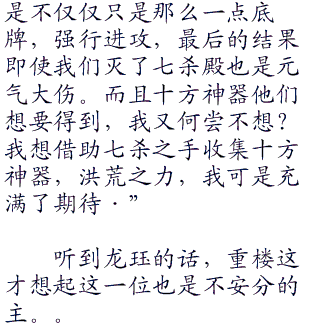 是不仅仅只是那么一点底
牌，强行进攻，最后的结果
即使我们灭了七杀殿也是元
气大伤。而且十方神器他们
想要得到，我又何尝不想？
我想借助七杀之手收集十方
神器，洪荒之力，我可是充
满了期待·”
听到龙珏的话，重楼这
才想起这一位也是不安分的
主。。